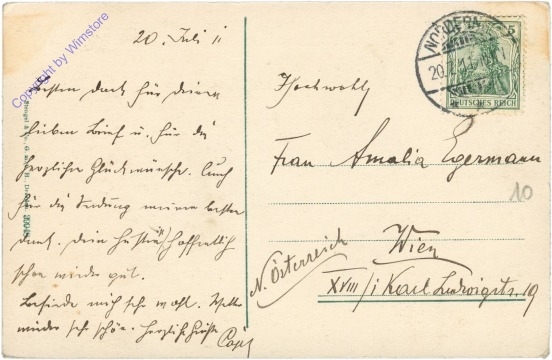 20. Juli 11
Besten dank für deinen
lieben Brief u. für die
herzlichen Glückwünsche. Auch
für die Sendung meinen besten
dank. dein Husten ist hoffentlich
schon wieder gut.
Befinde mich sehr wohl. Wetter
wieder sehr schön. Herzliche Grüße
Copyright by Wimstore
NORDERN
20.
5
DEUTSCHES REICH
Hochwohlg
Frau Amalia Egermann
10
Wien
N. Österreich
XVIII/1 Karl Ludwigstr. 19